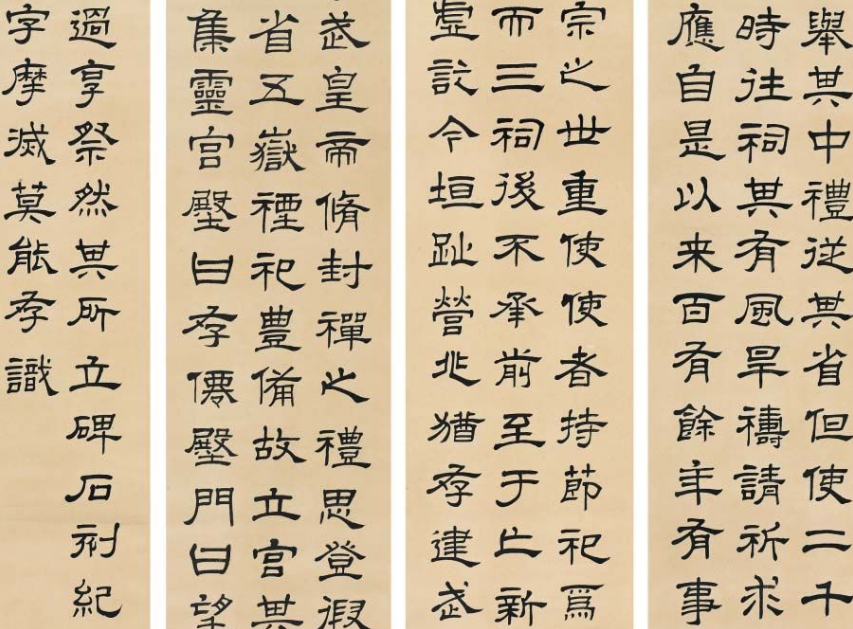 舉其中禮從其省但使二千
時往祠其有風旱禱請祈求
應自是以来百有餘年有事
宗之世重使使者持節祀焉
而三祠後不承前至于亡新
虛訖今垣趾營兆猶存建武
武皇帝脩封禪之禮思登徦
省五嶽禋祀豐備故立宮其
集靈宮壂曰存僊壂門曰望
過享祭然其所立碑石刻紀
字摩滅莫能存識